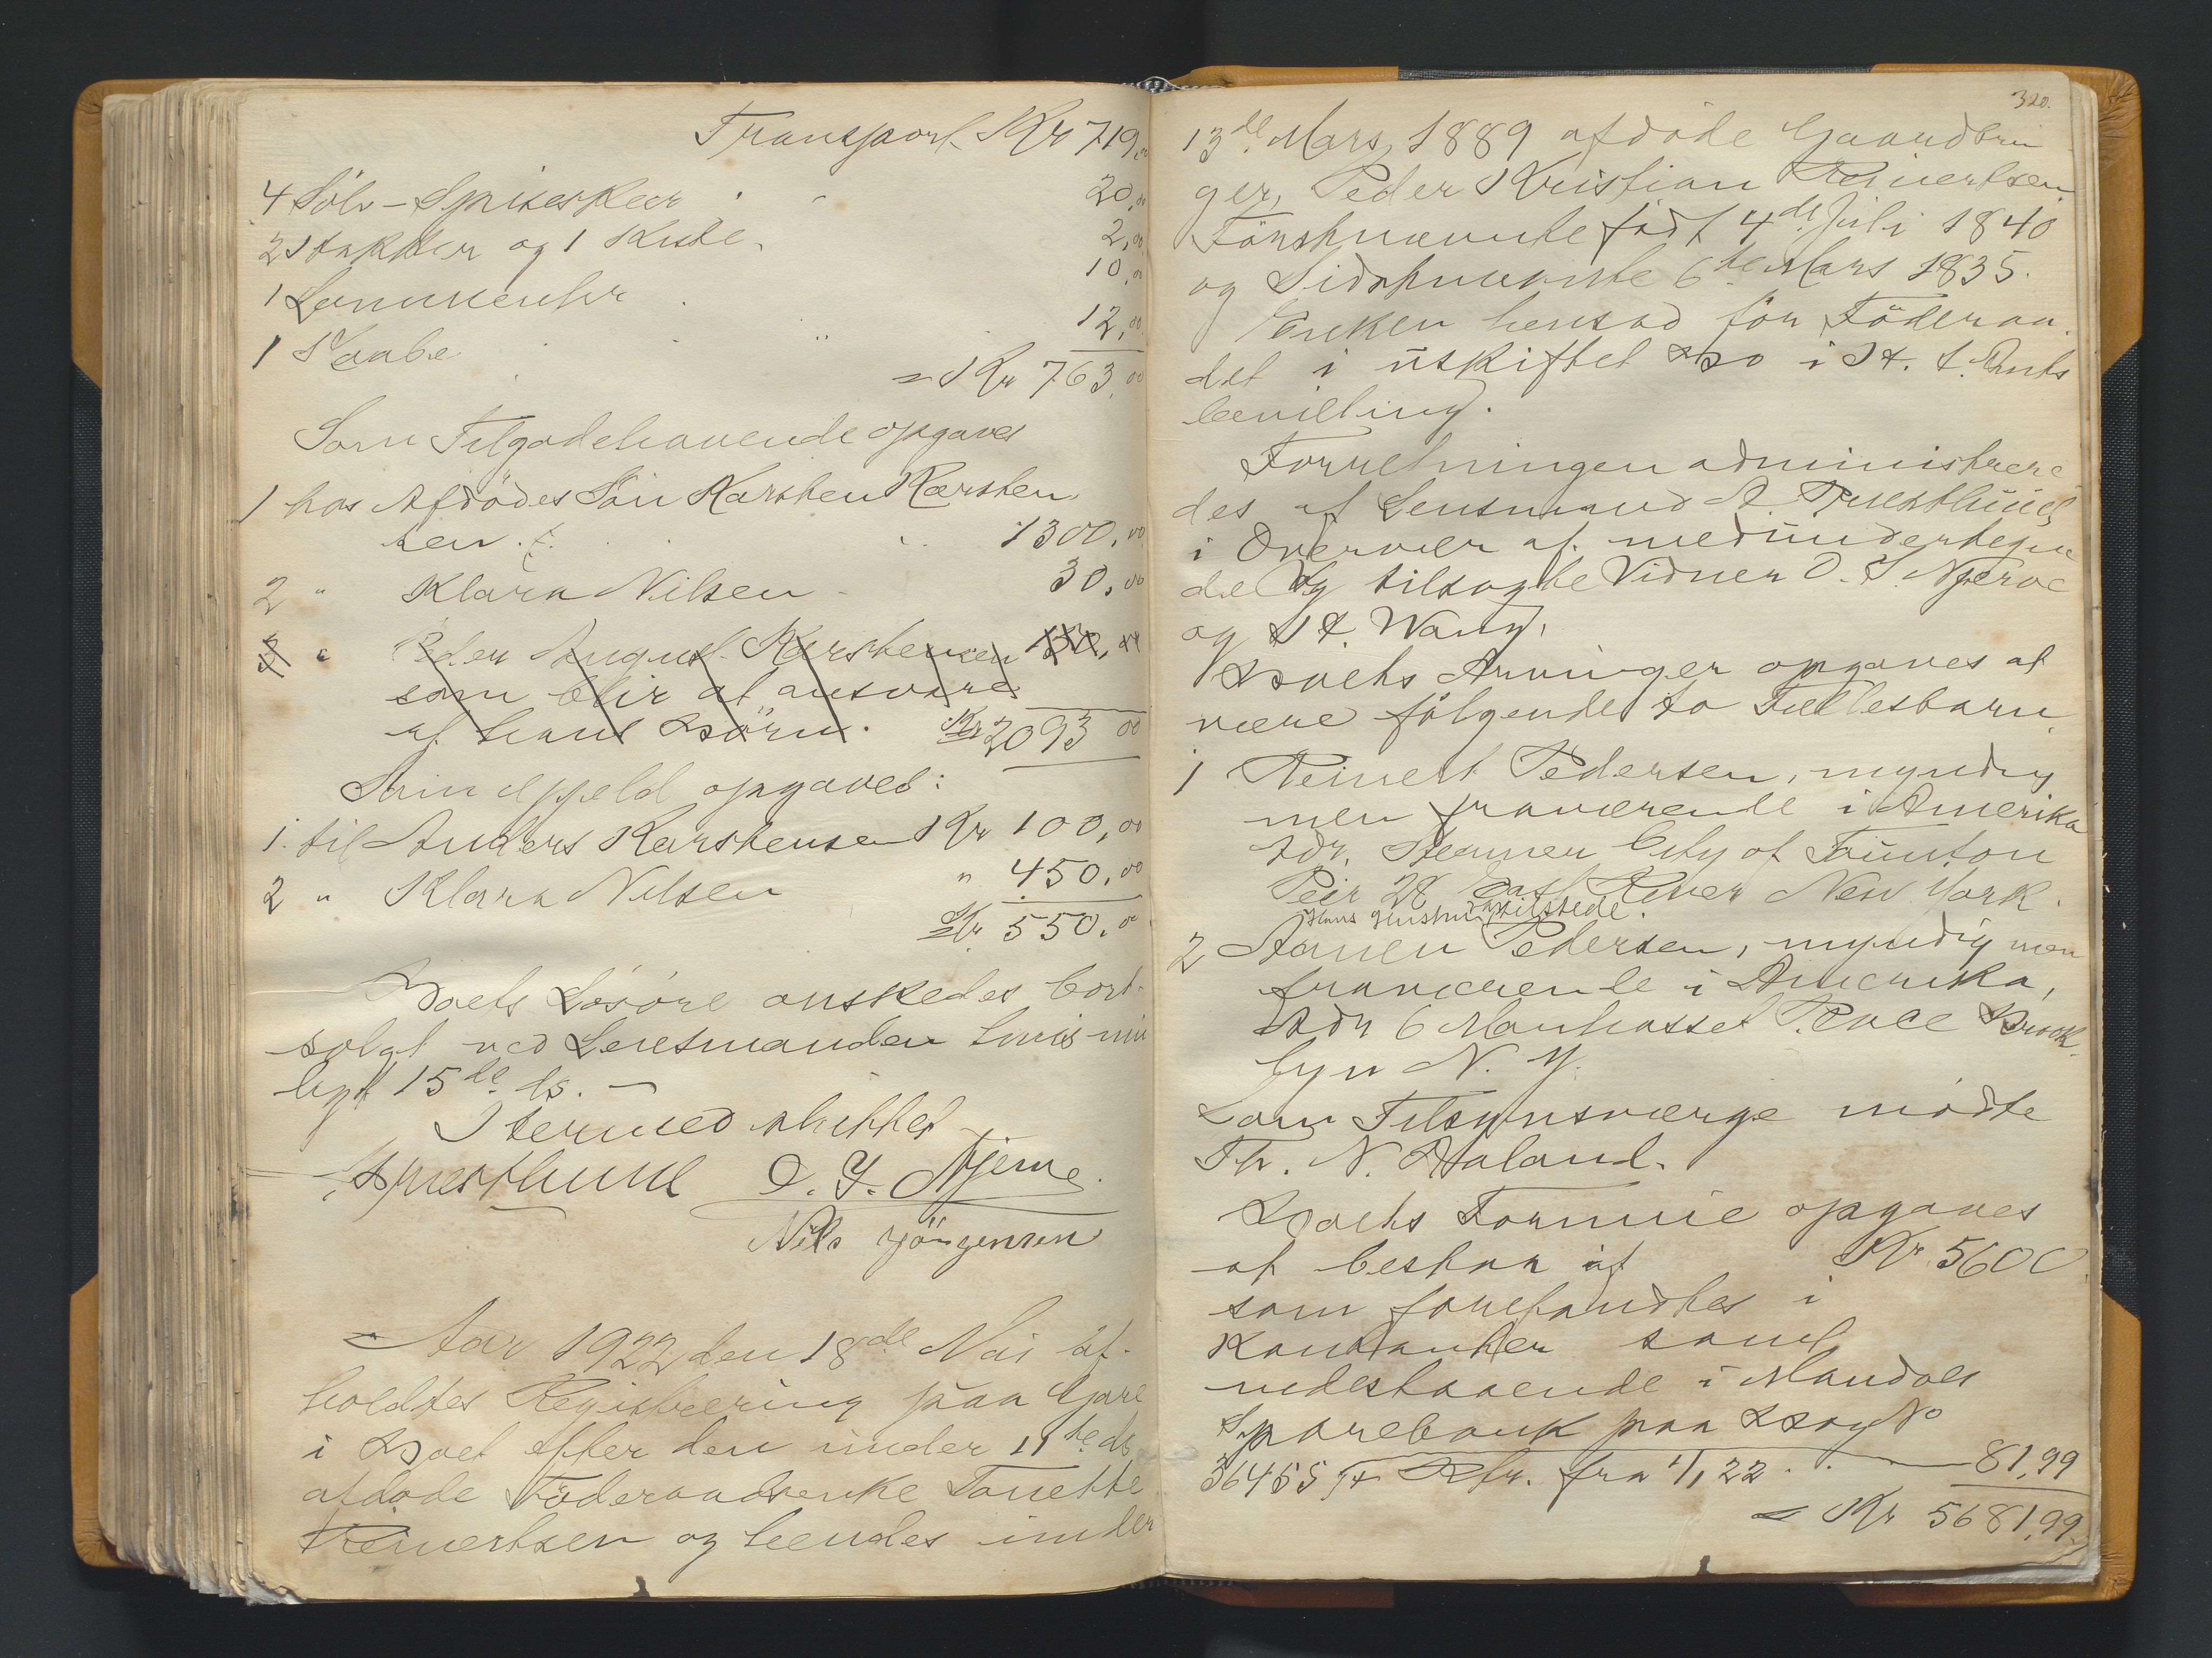 Transport Kr 719,00
4 Sölv-Spiseskeer 20,00
2 Stakker og 1 Kiste 2,00
1 Lommeuhr 10,00
1 Kaabe 12,00
= Kr 763,00
Som Tilgodehavende opgaves
1 hos Afdödes Sön Karsten Karsten
sen 1300,00
2 " Klara Nilsen 30,00
3 " Peder August Karstensen
som blir at ansvare
af hans Börn. Kr 2093 00
Som Gjæld opgaves:
1. til Anders Karstensen Kr 100,00
2 " Klara Nilsen " 450,00
Kr 550,00
Boets Lösöre önskedes bort-
solgt ved Lensmanden
15de ds.
Hermed sluttet
O. J. Njerve
Nils Jörgensen
Aar 1922 den 18de Mai af-
holdtes Registrering paa
i Boet efter den under 11te ds
afdöde Föderaadsenke Tonette
Reinertsen og hendes under
320.
13de Mars 1889 afdöde Gaardbru
ger, Peder Kristian Reinertsen
Förstnævnte födt 4de Juli 1840
og Sidstnævnte 6te Mars 1835.
Enken hensad för Föderaa
det i uskiftet Bo i St. f. Amts
bevilling.
Forretningen administrere
des af Lensmand
i Overvær af medundertegne
de og tilsagte Vidner O. J. Njerve
og Wang.
Boets Arvinger opgaves at
være fölgende to Fællesbarn
1 Reinert Pedersen, myndig
men fraværende i Amerika
Adr. Steamer City of Taunton
Peir 28 East River New York.
Hans tilstede.
2 Pedersen, myndig men
fraværende i Amerika,
Adr 6 Manhasset Place Brook-
lyn N. Y.
Som Tilsynsværge mödte
Th. N. Aaland.
Boets Formue opgaves
at bestaa af Kr 5600
som forefandtes i
Kontanter samt
indestaaende i Mandals
Sparebank paa Bog No
36455 + Rtr. fra 1/1 22 81,99
= Kr 5681,99